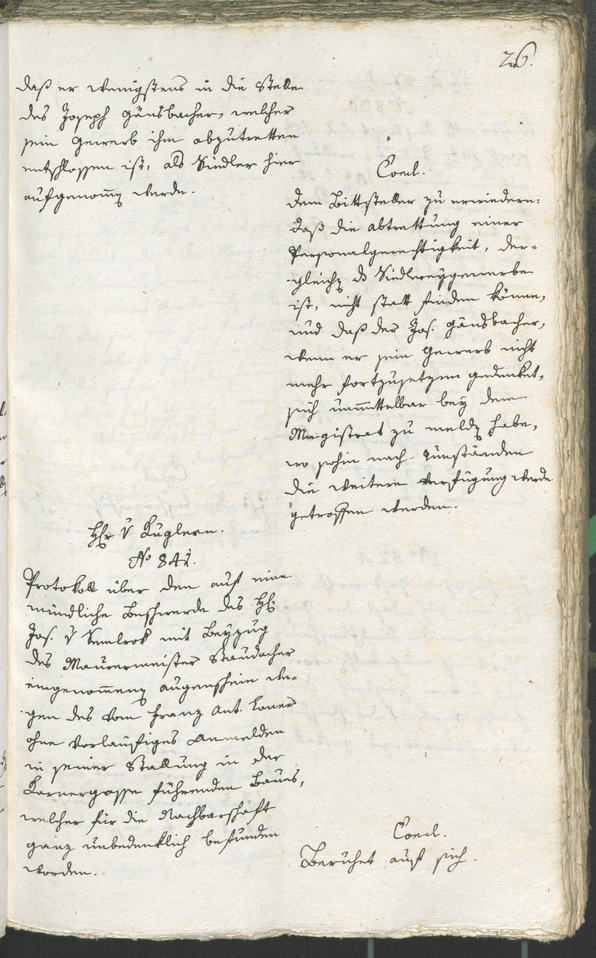 26.
daß er wenigstens in die Stelle
des Joseph Gänsbacher, welcher
sein Gewerb ihm abzutretten
entschlossen ist, als Siedler hier
aufgenomm̅ werde.
Concl.
Dem Bittsteller zu erwiedern:
daß die Abtrettung einer
Personalgerechtigkeit, der-
gleich̅ d Siedlereygewerbe
ist, nicht statt finden könne,
und daß der Jos. Gänsbacher,
wenn er sein Gewerb nicht
mehr fortzusetzen gedenket,
sich unmittelbar bey dem
Magistrat zu meld̅ habe,
wo sohin nach Umständen
die weitere Verfügung werde
getroffen werden.
H. v Kuglern.
No 841.
Protokoll über den auf eine
mündliche Beschwerde des H.
Jos. v mit Beyzug
des Maurermeister Staudacher
eingenommen̅ Augenschein we-
gen des vom Franz Ant.
ohne vorläufiges Anmelden
in seiner Stallung in der
Kornergasse führenden Baues,
welcher für die Nachbarschaft
ganz unbedenklich befunden
worden.
Concl.
Beruhet auf sich.